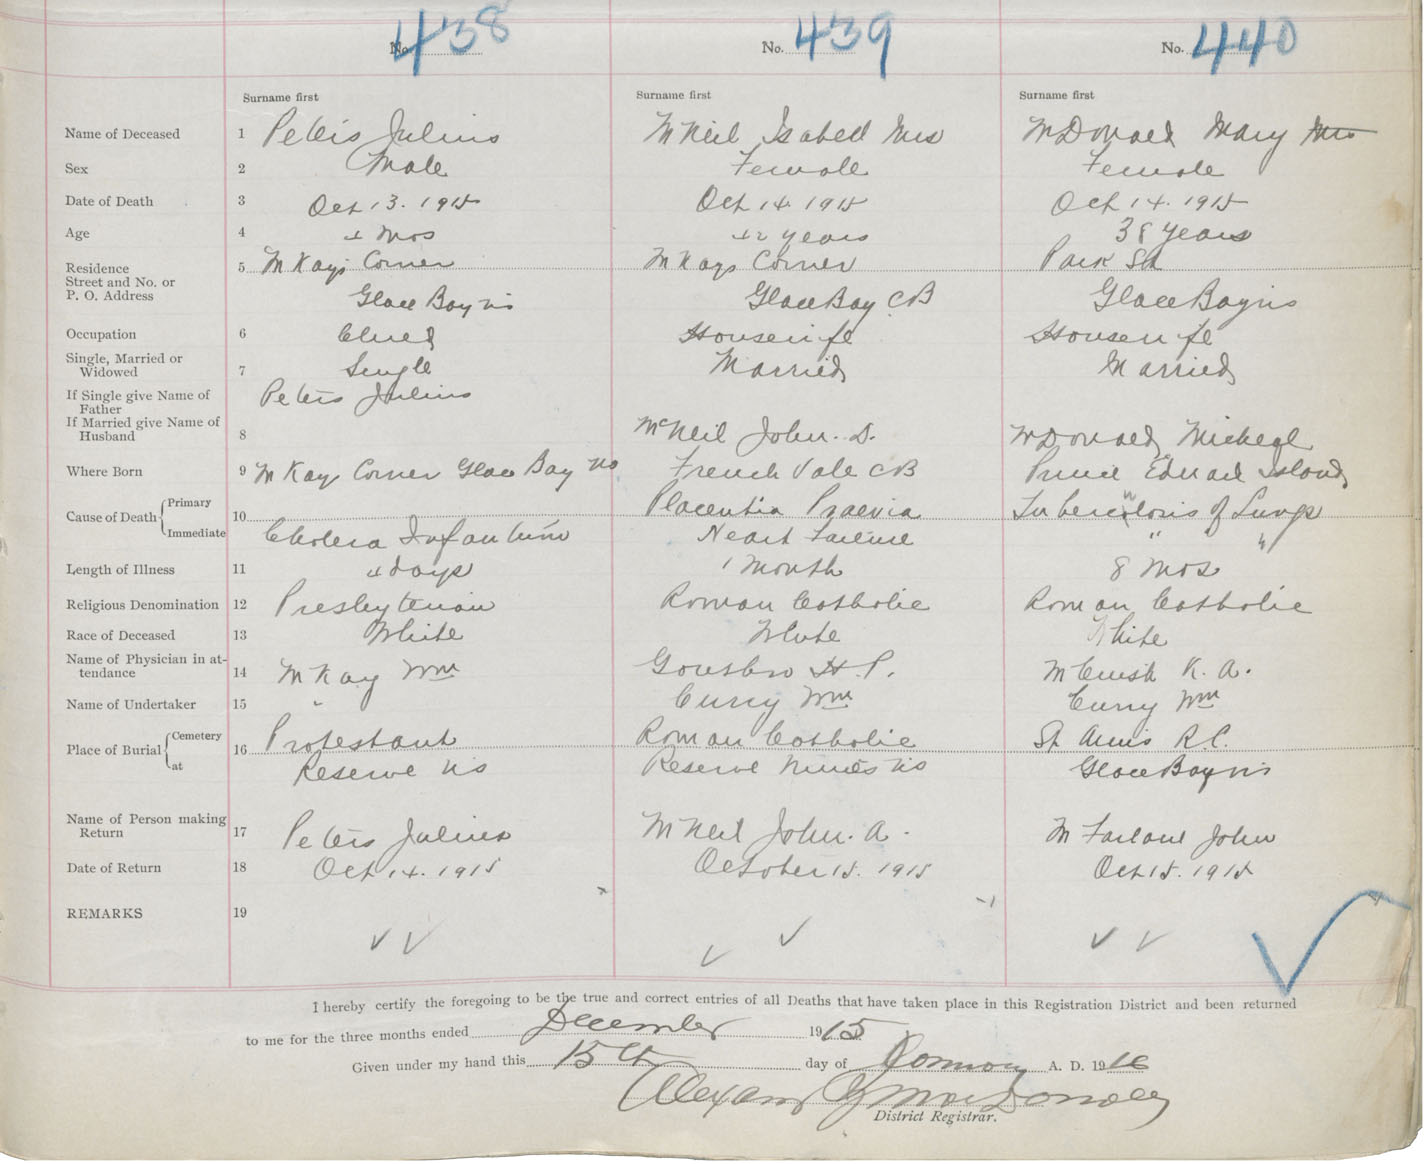 No. 438 No. 439 No. 440
Surname first Surname first Surname first
Name of Deceased 1 Peters Julius McNeil Isabell Mrs McDonald Mary Mrs
Sex 2 Male Female Female
Date of Death 3 Oct 13. 1915 Oct 14. 1915 Oct 14. 1915
Age 4 4 mos 42 years 38 years
Residence 5 McKays Corner McKays Corner Park St
Street and No. or
P. O. Address Glace Bay NS Glace Bay CB Glace Bay NS
Occupation 6 Child Housewife Housewife
Single, Married or
Widowed 7 Single Married Married
If Single give Name of
Father Peters Julius
If Married give Name of
Husband 8 McNeil John. D. McDonald Micheal
Where Born 9 McKays Corner Glace Bay NS French Vale CB Prince Edward Island
Cause of Death { Primary 10 Placentia Praevia Tuberculoris of Lungs
Immediate Cholera Infantum Heart Failure " "
Length of Illness 11 4 days 1 Month 8 mos
Religious Denomination 12 Presbyterian Roman Catholic Roman Catholic
Race of Deceased 13 White White White
Name of Physician in at-
tendance 14 McKay Wm H. P. McCuish K. A.
Name of Undertaker 15 " Curry Wm. Curry Wm
Place of Burial { Cemetery 16 Protestant Roman Catholic St Anns R.C.
at Reserve NS Reserve Mines NS Glace Bay NS
Name of Person making
Return 17 Peters Julius McNeil John. A. McFarlane John
Date of Return 18 Oct 14. 1915 October 15. 1915 Oct 15. 1915
REMARKS 19
I hereby certify the foregoing to be the true and correct entries of all Deaths that have taken place in this Registration District and been returned
to me for the three months ended December 1915
Given under my hand this 15th day of January A. D. 1916
MacDonald
District Registrar.